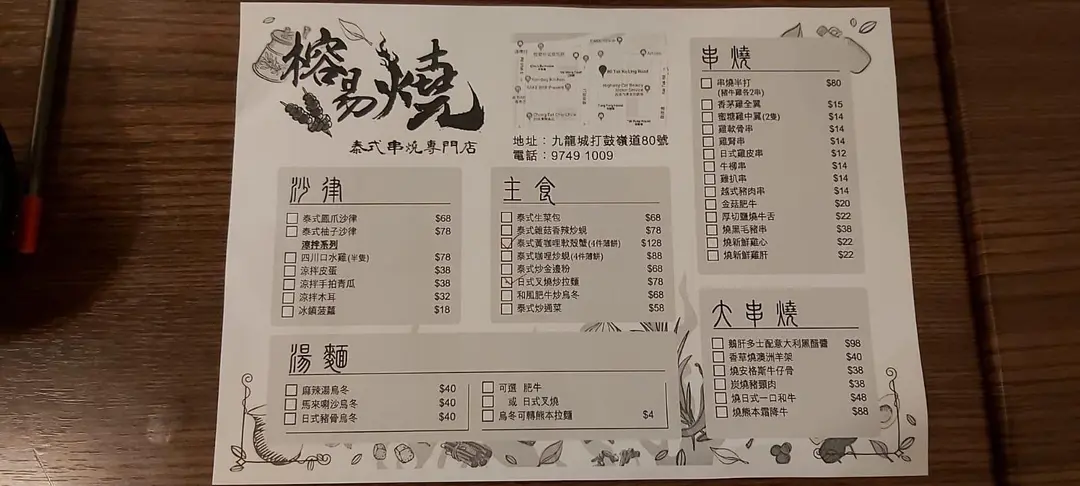 榕易燒
泰式串燒專門店
80 Tak Ku Ling Road
地址：九龍城打鼓嶺道80號
電話：9749 1009
沙律
泰式鳳爪沙律 $68
泰式柚子沙律 $78
涼拌系列
四川口水雞(半隻) $78
涼拌皮蛋 $38
涼拌手拍青瓜 $38
涼拌木耳 $32
冰鎮菠蘿 $18
主食
泰式生菜包 $68
泰式雜菇香辣炒蜆 $78
泰式黃咖哩軟殼蟹(4件薄餅) $128
泰式咖哩炒蜆(4件薄餅) $88
泰式炒金邊粉 $68
日式叉燒炒拉麵 $78
和風肥牛炒烏冬 $68
泰式炒通菜 $58
湯麵
麻辣湯烏冬 $40
馬來喇沙烏冬 $40
日式豬骨烏冬 $40
可選 肥牛
或 日式叉燒
烏冬可轉熊本拉麵 $4
串燒
串燒半打 $80
(豬牛雞各2串)
香茅雞全翼 $15
蜜糖雞中翼(2隻) $14
雞軟骨串 $14
雞腎串 $14
日式雞皮串 $12
牛柳串 $14
雞扒串 $14
越式豬肉串 $14
金菇肥牛 $20
厚切鹽燒牛舌 $22
燒黑毛豬串 $38
燒新鮮雞心 $22
燒新鮮雞肝 $22
大串燒
鵝肝多士配意大利黑醋醬 $98
香草燒澳洲羊架 $40
燒安格斯牛仔骨 $38
炭燒豬頸肉 $38
燒日式一口和牛 $48
燒熊本霜降牛 $88